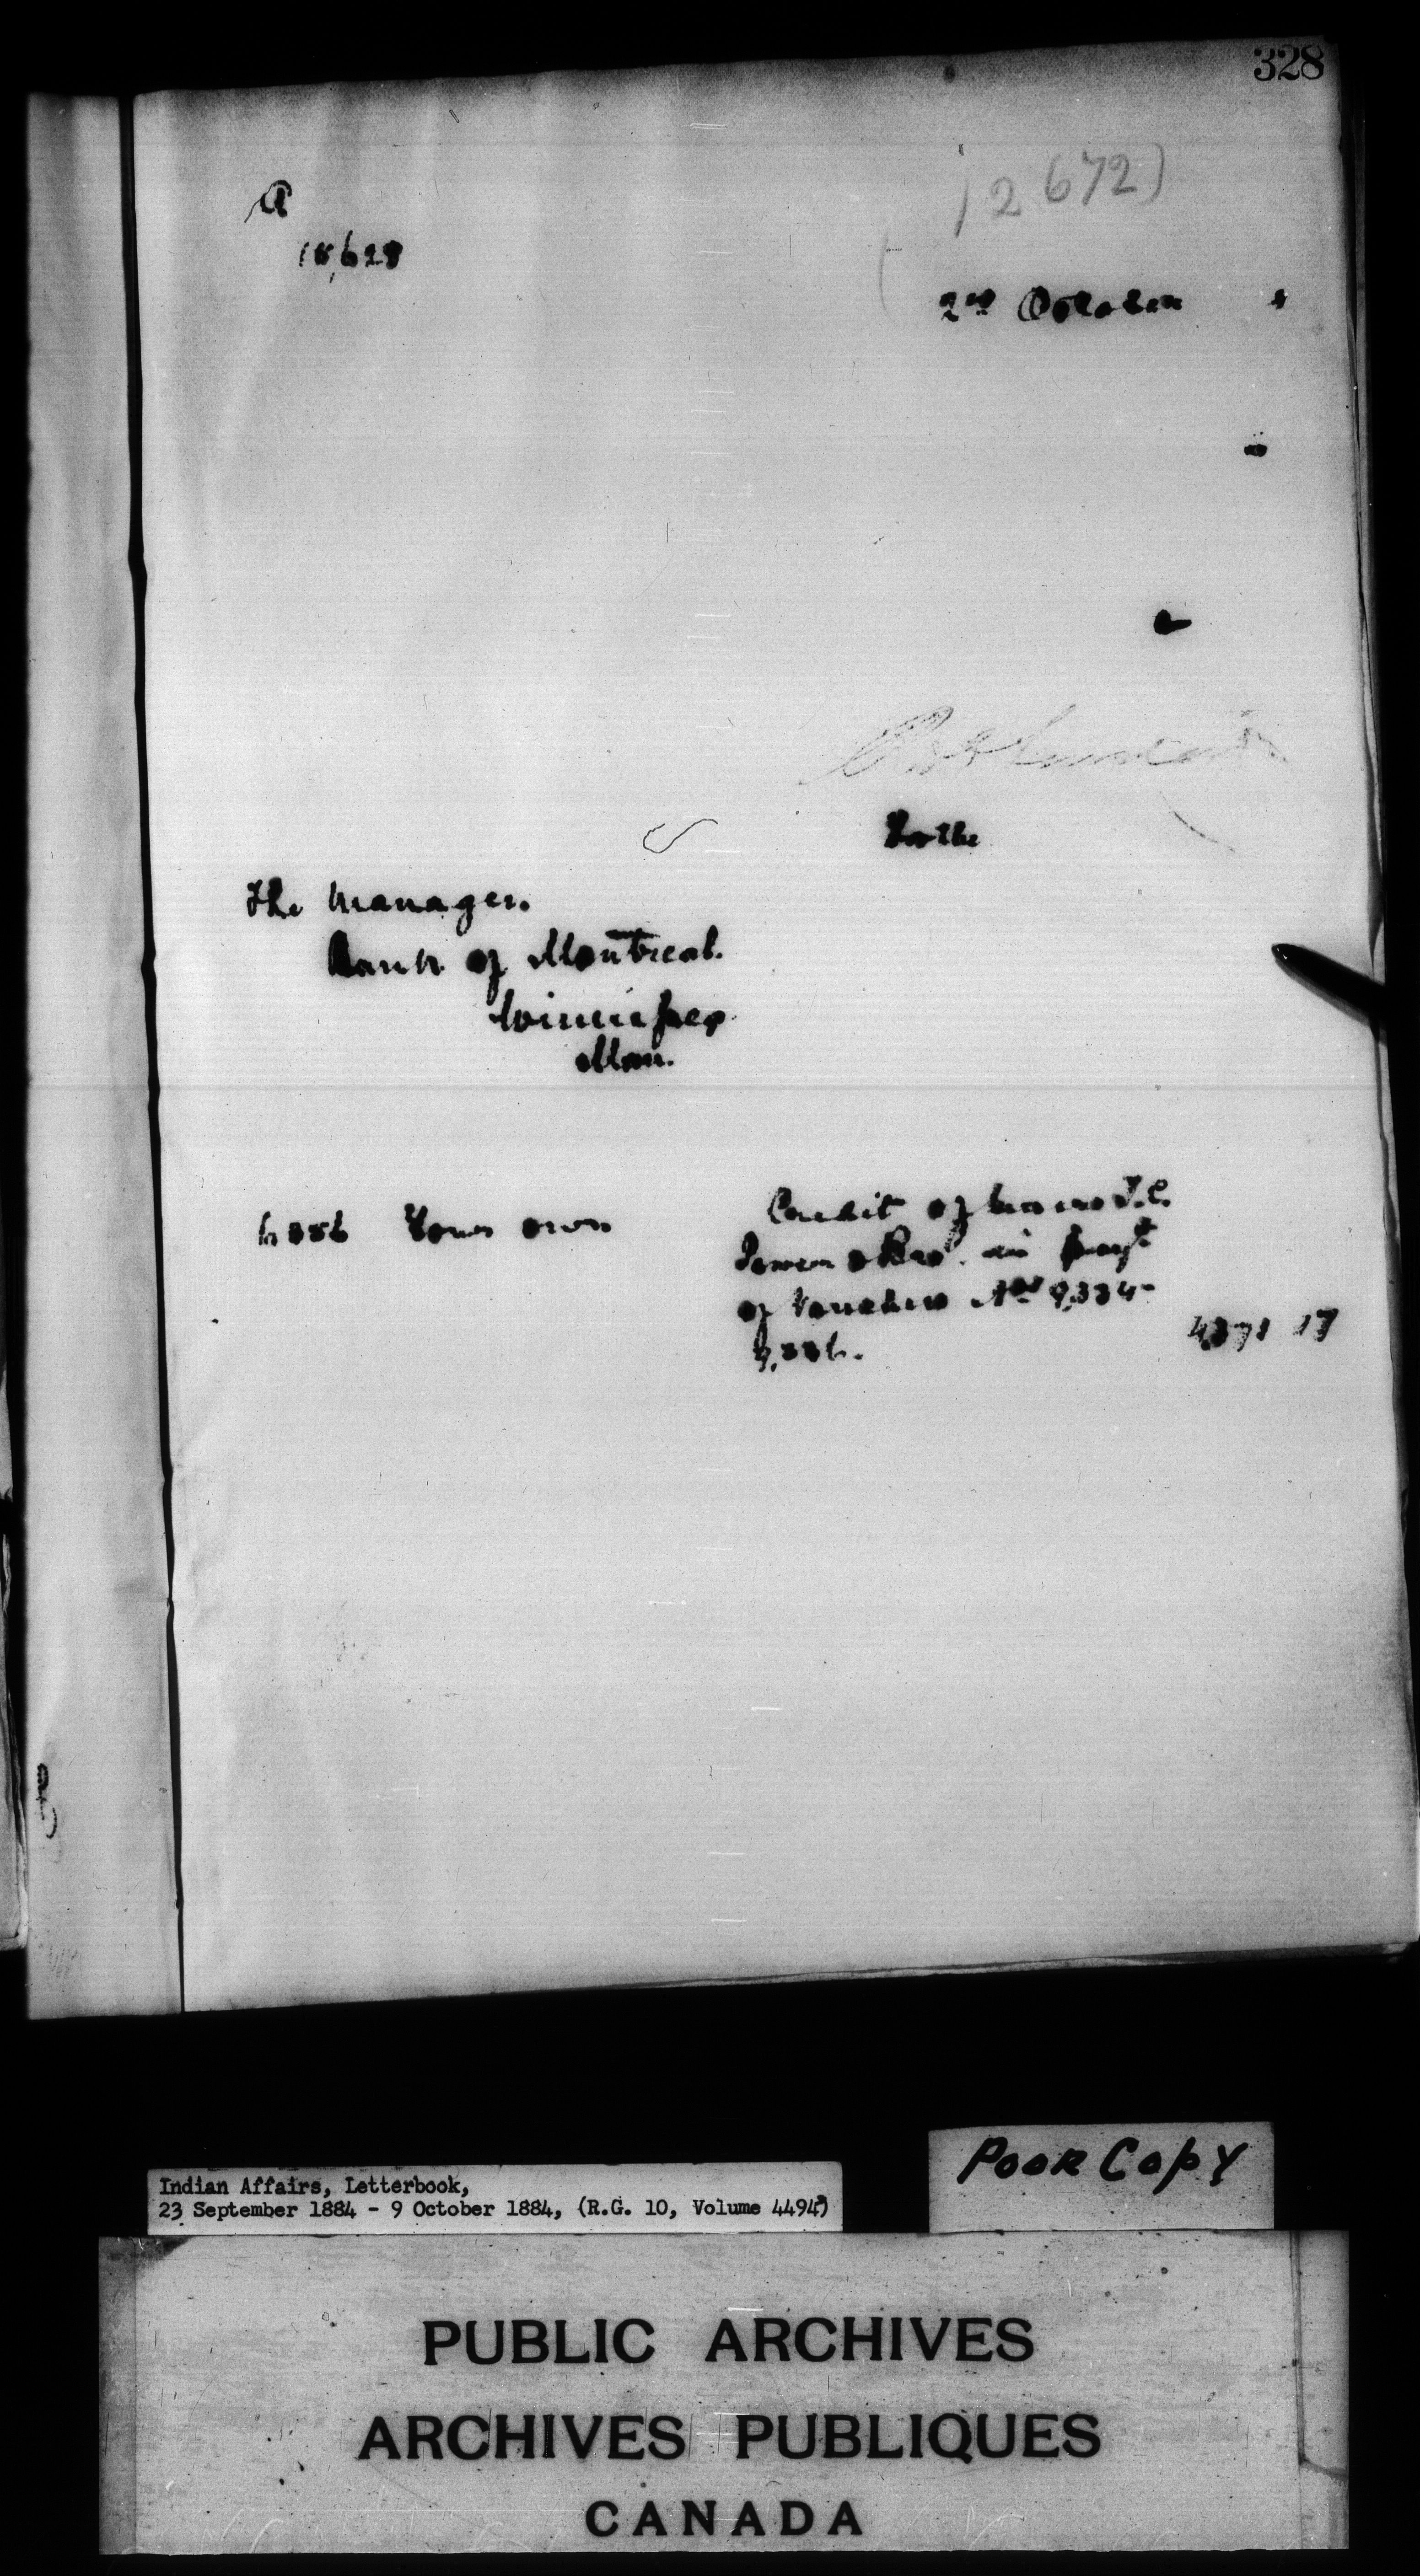 328
12672)
A
15,628
2nd October 4
For the
The Manager.
Bank of Montreal.
Winnipeg
Man.
Your own
Credit of Messrs T.C.
Power & Bro. in payt
of Vouchers Nos 9,334-
9,336.
17
Indian Affairs, Letterbook,
23 September 1884 - 9 October 1884, (R.G. 10, Volume 4494)
Poor Copy
PUBLIC ARCHIVES
ARCHIVES PUBLIQUES
CANADA